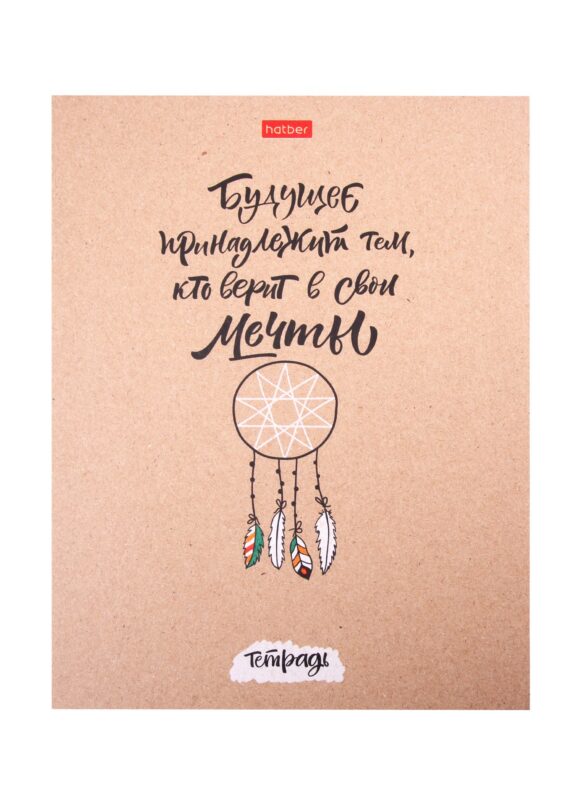 hatber
Будущее
принадлежит тем,
кто верит в свои
Мечты
Тетрадь